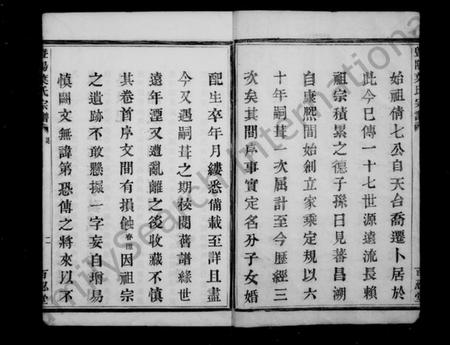 始祖倩七公自天台喬遷卜居於
此今已傳一十七世源遠流長賴
祖宗積累之德子孫日見蕃昌溯
自康熙間始創立家乘定規以六
十年嗣葺一次屈計至今歷經三
次矣其間序事實定名分子女婚
配生卒年月縷悉備載至詳且盡
今又遇嗣葺之期校閱舊譜緣世
遠年湮又遭亂離之後收藏不慎
其卷首序文間有損蝕 因祖宗
之遺跡不敢懸擬一字妄自增易
慎闕文無諱第恐傳之將來以不
暨陽葉氏宗譜
二
百忍堂
FamilySearch International